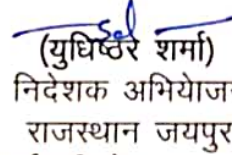 (युधिष्ठर शर्मा)
निदेशक अभियोजन
राजस्थान जयपुर